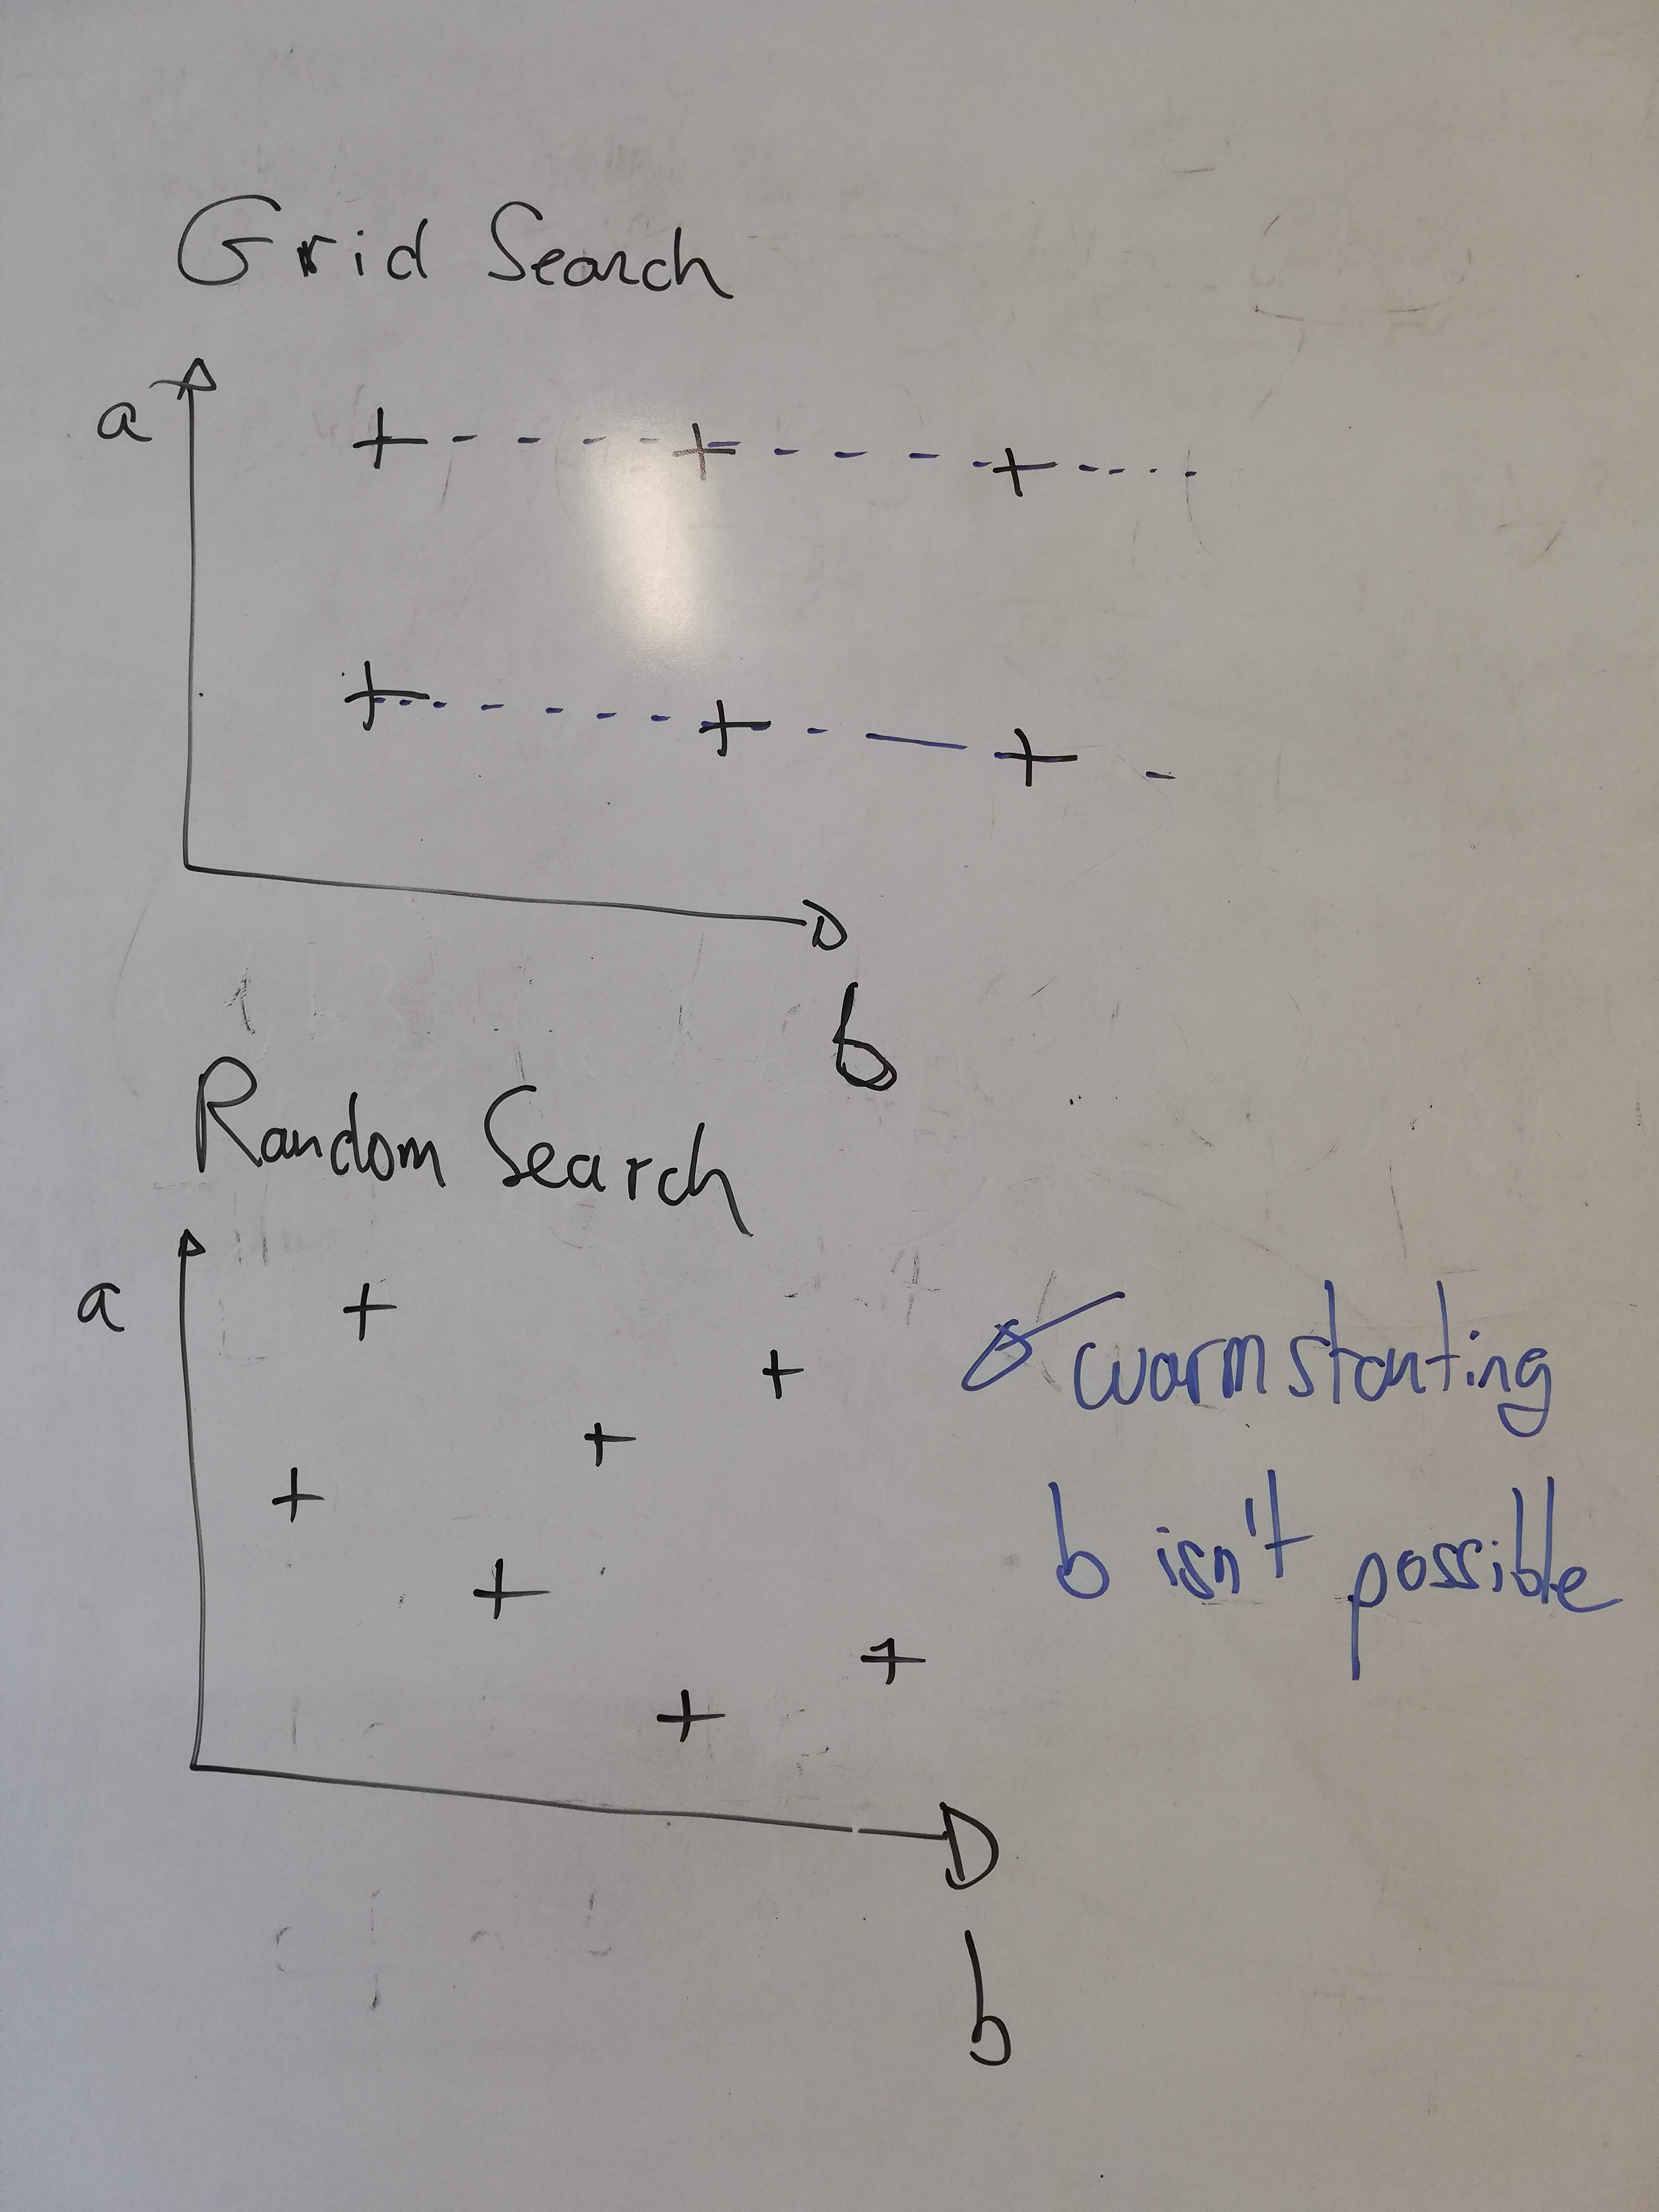 Grid Search
a
b
Random Search
a
warmstarting
b isn't possible
b